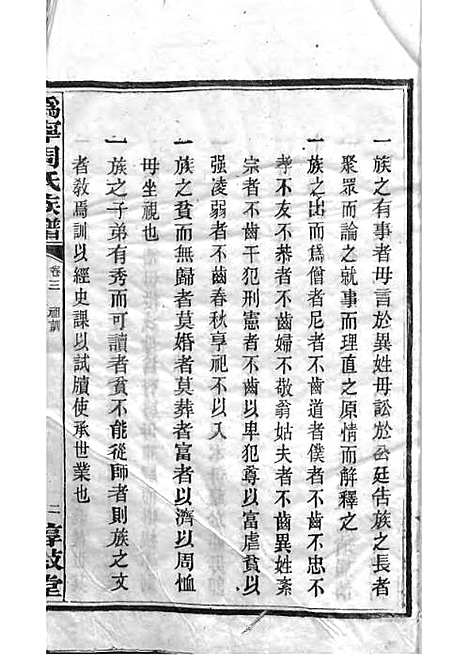 一族之有事者毋言於異姓毋訟於公廷告族之長者
聚眾而論之就事而理直之原情而解釋之
一族之出而為僧者尼者不齒道者僕者不齒不忠不
孝不友不恭者不齒婦不敬翁姑夫者不齒異姓紊
宗者不齒干犯刑憲者不齒以卑犯尊以富虐貧以
强凌弱者不齒春秋享祀不以入
一族之貧而無歸者莫婚者莫葬者富者以濟以周恤
毋坐視也
一族之子弟有秀而可讀者貧不能從師者則族之文
者教焉訓以經史課以試牘使承世業也
寧周氏族譜
卷三
祖訓
二
堂